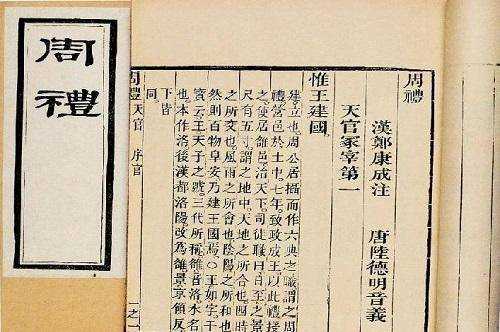 周禮
周禮
漢鄭康成注 唐陸德明音義
天官冢宰第一
惟王建國。
建立也周公居攝而作六典之職謂之周
禮營邑於土中七年致政成王以此禮授
之使居雒邑治天下司徒職曰日至之景
尺有五寸謂之地中天地之所合也四時
之所交也風雨之所會也陰陽之所和也
然則百物阜安乃建王國焉○王如字干
寶云王天子之號三代所稱雒音洛水名
也本作洛後漢都洛陽改為雒景京領反
下皆
同
周禮 天官 序官 一之一